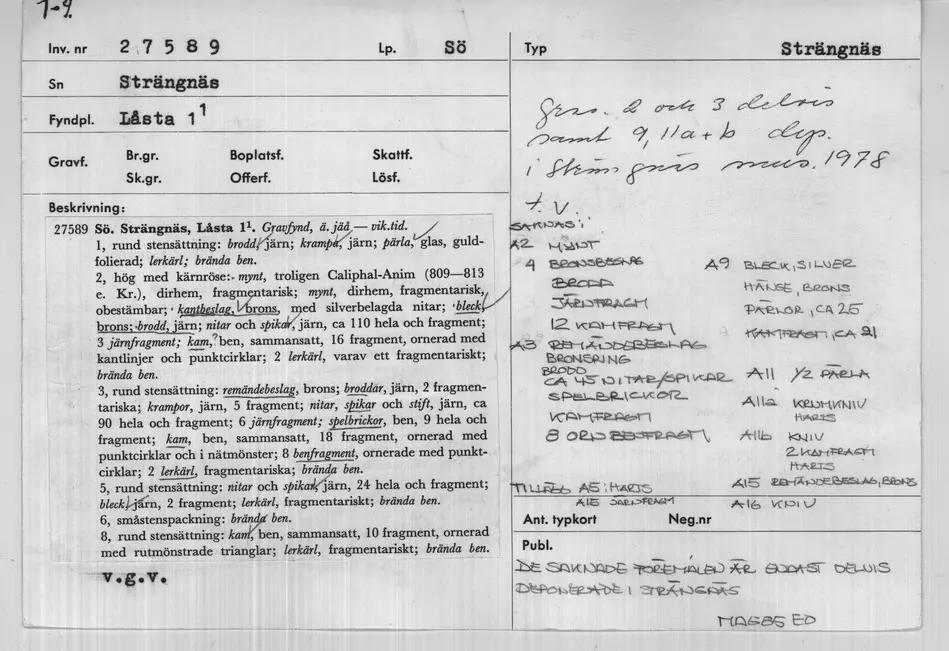 1-9.
Inv. nr 27589 Lp. Sö
Sn Strängnäs
Fyndpl. Låsta 1¹
Gravf. Br.gr. Boplatsf. Skattf.
Sk.gr. Offerf. Lösf.
Beskrivning:
27589 Sö. Strängnäs, Låsta 1¹. Gravfynd, ä. jäå — vik.tid.
1, rund stensättning: brodd, järn; krampa, järn; pärla, glas, guld-
folierad; lerkärl; brända ben.
2, hög med kärnröse: mynt, troligen Caliphal-Anim (809—813
e. Kr.), dirhem, fragmentarisk; mynt, dirhem, fragmentarisk,
obestämbar; kantbeslag, brons, med silverbelagda nitar; bleck,
brons; brodd, järn; nitar och spikar, järn, ca 110 hela och fragment;
3 järnfragment; kam, ben, sammansatt, 16 fragment, ornerad med
kantlinjer och punktcirklar; 2 lerkärl, varav ett fragmentariskt;
brända ben.
3, rund stensättning: remändebeslag, brons; broddar, järn, 2 fragmen-
tariska; krampor, järn, 5 fragment; nitar, spikar och stift, järn, ca
90 hela och fragment; 6 järnfragment; spelbrickor, ben, 9 hela och
fragment; kam, ben, sammansatt, 18 fragment, ornerad med
punktcirklar och i nätmönster; 8 benfragment, ornerade med punkt-
cirklar; 2 lerkärl, fragmentariska; brända ben.
5, rund stensättning: nitar och spikar, järn, 24 hela och fragment;
bleck, järn, 2 fragment; lerkärl, fragmentariskt; brända ben.
6, småstenspackning: brända ben.
8, rund stensättning: kam, ben, sammansatt, 10 fragment, ornerad
med rutmönstrade trianglar; lerkärl, fragmentariskt; brända ben.
v.g.v.
Typ Strängnäs
Grav. 2 och 3 delvis
samt 9, 11a+b dep.
i Strängnäs mus. 1978
t.v.
SAKNAS:
A2 MYNT
4 BRONSBESLAG
BRODD
JÄRNFRAGM
12 KAMFRAGM
A3 REMÄNDEBESLAG
BRONSRING
BRODD
CA 45 NITAR/SPIKAR
SPELBRICKOR
KAMFRAGM
8 ORN BENFRAGM
TILLÄGG A5: HARTS
A15 JÄRNFRAGM
A9 BLECK, SILVER
HÄNGE, BRONS
PÄRLOR, CA 25
KAMFRAGM, CA 21
A11 1/2 PÄRLA
A11a KRUMKNIV
HARTS
A11b KNIV
2 KAMFRAGM
HARTS
A15 REMÄNDEBESLAG, BRONS
A16 KNIV
Ant. typkort Neg.nr
Publ.
DE SAKNADE FÖREMÅLEN ÄR ENDAST DELVIS
DEPONERADE I STRÄNGNÄS
MAG85 EO